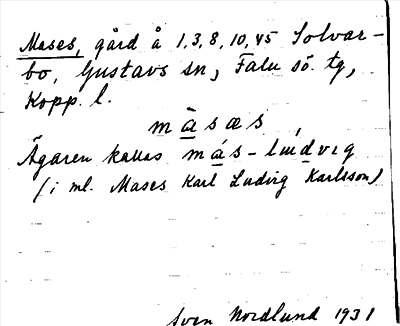 Mases, gård å 1, 3, 8, 10, 45 Solvar-
bo, Gustavs sn, Falu sö. tg,
Kopp. l.
màsæs
Ägaren kallas más-lɯdvɩg
(i ml. Mases Karl Ludvig Karlsson)
Sven Nordlund 1931